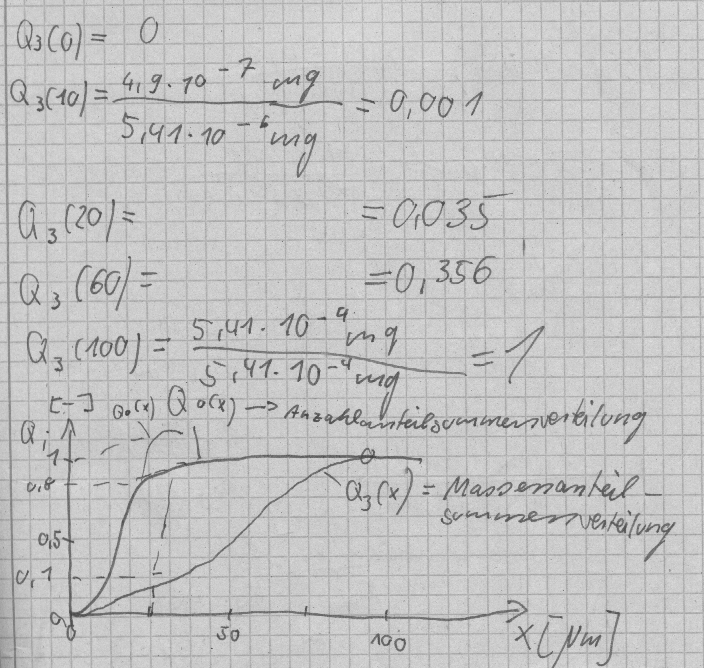 Q₃(0) = 0
Q₃(10) = 4,9·10⁻⁷ mg / 5,41·10⁻⁶ mg = 0,001
Q₃(20) = = 0,035
Q₃(60) = = 0,356
Q₃(100) = 5,41·10⁻⁴ mg / 5,41·10⁻⁴ mg = 1
[-] Q₀(x) Q₀(x) → Anzahlanteilsummenverteilung
Qᵢ
1
0,8
Q₃(x) = Massenanteil-
summenverteilung
0,5
0,1
0
0 50 100 x [µm]